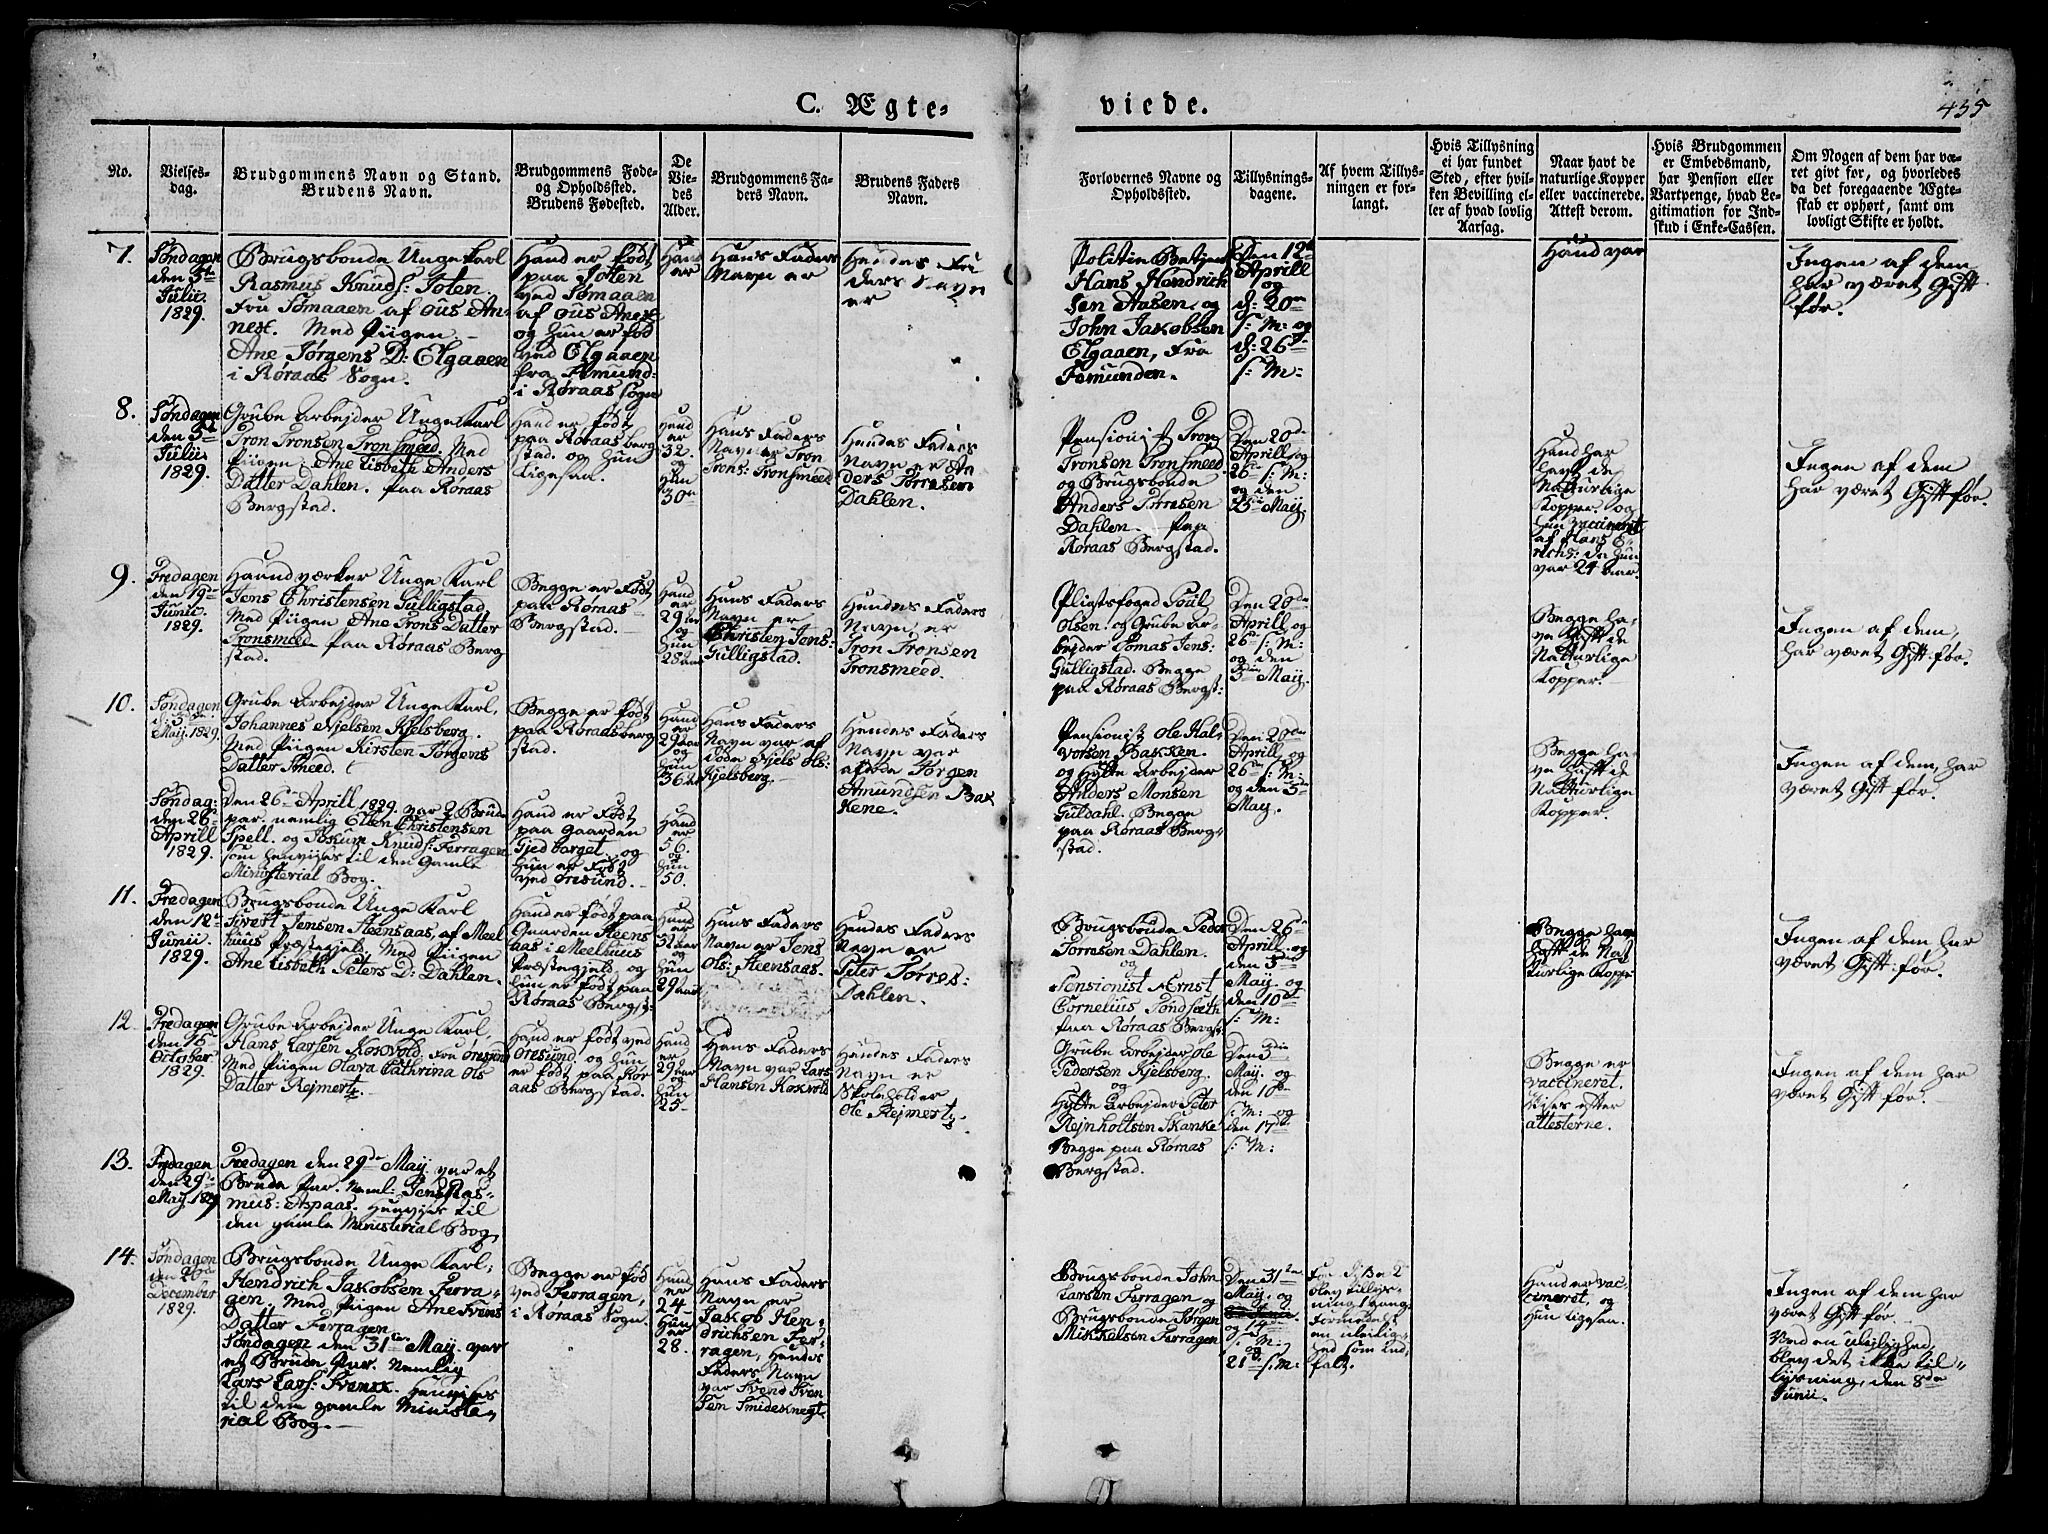 C. Ægte-
viede.
455
No.
Vielses-
dag.
Brudgommens Navn og Stand.
Brudens Navn.
Brudgommens Føde-
og Opholdssted.
Brudens Fødested.
De
Vie-
des
Alder.
Brudgommens Fa-
ders Navn.
Brudens Faders
Navn.
Forlovernes Navne og
Opholdssted.
Tillysnings-
dagene.
Af hvem Tillys-
ningen er for-
langt.
Hvis Tillysning
ei har fundet
Sted, efter hvil-
ken Bevilling el-
ler af hvad lovlig
Aarsag.
Naar havt de
naturlige Kopper
eller vaccinerede.
Attest derom.
Hvis Brudgommen
er Embedsmand,
har Pension eller
Vartpenge, hvad Le-
gitimation for Ind-
skud i Enke-Cassen.
Om Nogen af dem har væ-
ret givt før, og hvorledes
da det foregaaende Ægte-
skab er ophørt, samt om
lovligt Skifte er holdt.
7.
Søndagen
den 5te
Julii
1829.
Brugsbonde Unge Karl
Rasmus Knuds: Toten.
Fra Sømaaen af Ous An-
nex. Med Piigen
Ane Jørgens D: Elgaaen
i Røraas Sogn.
Hand er født
paa Totten
ved Sømaaen
af Ous Anex
og Hun er fød
ved Elgaaen
fra Femund:
i Røraas Sogn
Hand
er
Hans Faders
Navn er
Hendes Fa
ders Navn
er
Politie Betjent
Hans Hendrich
sen Aasen, og
John Jakobsen
Elgaaen, Fra
Femunden.
Den 12te
Aprill
og
d: 20de
s: M: og
d: 26de
s: M:
Hand var
Ingen af dem
har været Gift
før.
8.
Søndagen
den 5te
Julii
1829.
Grube Arbejder Unge Karl
Tron Tronsen Tronsmeed. Med
Piigen Ane Lisbeth Anders
Datter Dahlen. Paa Røraas
Bergstad.
Hand er født
paa Røraas berg
stad. og Hun
Ligesaa.
Hand
er
32.
og
Hun
30
Hans Faders
Navn er Tron
Trons: Tronsmeed
Hendes Faders
Navn er An
ders Torresen
Dahlen.
Pensionist Tron
Tronsen Tronsmeed
og Brugsbonde
Anders Torresen
Dahlen. Paa
Røraas Bergstad.
Den 20de
Aprill og
26de s: M:
og den
3die May.
Hand har
havt de
Natturlige
Kopper. og
Hun vaccineret
af Hans E-
richs: da hun
var 24 aar.
Ingen af dem
har været Gift før.
9.
Fredagen
den 19de
Junii
1829.
Haandværker Unge Karl
Jens Christensen Gulligstad,
Med Piigen Ane Trons Datter
Tronsmeed Paa Røraas Berg
stad.
Begge er Født
paa Røraas
Bergstad.
Hand
er
29 aar
og
Hun
28 aar
Hans Faders
Navn er
Christen Jens:
Gulligstad.
Hendes Faders
Navn er
Tron Tronsen
Tronsmeed.
Pligtsfoged Poul
Olsen. og Grube Ar-
bejder Tomas Jens:
Gulligstad. Begge
paa Røraas Bergst:
Den 20de
Aprill og
26de s: M:
og den
3die May.
Begge ha-
ve havt de
Natturlige
Kopper.
Ingen af dem,
har været Gift før.
10.
Søndagen
d: 3die
Maij. 1829.
Grube Arbejder Unge Karl,
Johannes Njelsen Kjelsberg.
Med Piigen Kirsten Jørgens
Datter Smeed.
Begge er født
paa Røraasberg
stad.
Hand
er
29 aar
og
Hun
36 aar
Hans Faders
Navn var af
døde Njels Ols:
Kjelsberg.
Hendes Faders
Navn var
afdøde Jørgen
Amundsen Bak
kene.
Pensionist Ole Hal-
vorsen Bakken.
og Hytte Arbejder
Anders Monsen
Guldahl. Begge
paa Røraas Berg-
stad.
Den 20de
Aprill og
26de s: M:
og den 3die
May.
Begge ha-
ve haft de
Natturlige
Kopper.
Ingen af dem, har
været Gift før.
Søndag:
den 26de
Aprill
1829.
Den 26de Aprill 1829. var 2 Brude
par. nemlig Elten Christensen
Spell. og Knuds: Ferragen
som henvises til den Gamle
Ministerial Bog.
Hand er Født
paa Gaarden
Gjedbarget, og
Hun er Født
ved Oresund.
Hand
er
56.
og
Hun
50.
11.
Fredagen
den 12te
Junii
1829.
Brugsbonde Unge Karl
Sivert Jensen Steensaas, af Meel
huus Præstegjeld. Med Piigen
Ane Lisbeth Peters D: Dahlen.
Hand er født paa
Gaarden Steens
aas i Meelhuus
Præstegjeld, og
hun er født paa
Røraas Bergst:
Hand
er
og
Hun
29 aar
Hans Faders
Navn er Jens
Ols: Steensaas.
Hendes Faders
Navn er
Peter Torres:
Dahlen.
Brugsbonde Peder
Torrasen Dahlen.
og
Pensionist Ernst
Cornelius Sondseth
paa Røraas Bergst:
Den 26de
Aprill. og
den 3die
May. og
den 10de
s: M:
Begge have
haft de Nat
turlige Kopper
Ingen af dem har
været Gift før.
12.
Fredagen
den 16de
October
1829.
Grube Arbejder Unge Karl,
Hans Larsen Kokvold, fra Oresund
Med Piigen Olava Cathrina Ols
Datter Rejmertz.
Hand er født ved
Oresund. og hun
er født paa Rør-
aas Bergstad.
Hand
er
29 aar
og
Hun
25
Hans Faders
Navn var Lars
Hansen Kokvold
Hendes Faders
Navn er
Skoleholder
Ole Rejmertz.
Grube Arbejder Ole
Pedersen Kjelsberg.
og
Hytte Arbejder Peter
Rejnholtsen Skanke
Begge paa Røraas
Bergstad.
Den 3die
May. og
den 10de
s: M: og
den 17de
s: M:
Begge er
vaccineret.
Vises efter
attesterne.
Ingen af dem har
været Gift før.
13.
Fredagen
den 29de
May. 1829
Fredagen den 29de May. var et
Brude Par. Neml: Jens Ras-
mus: Aspaas. Henvises til
den gamle Ministerial Bog,
14.
Søndagen
den
December
1829.
Brugsbonde Unge Karl.
Hendrich Jakobsen Ferra-
gen, Med Piigen Ane Svens
Datter Ferragen
Søndagen den 31te May. var
et Brude Par. Nemlig
Lars Lars: Svensk. Henvises
til dem gamle Ministe-
rial Bog.
Begge er fød
ved Ferragen,
i Røraas Sogn.
Hand
er
24
Hun
er
28.
Hans Faders
Navn er
Jakob Hen-
drichsen Fer-
ragen, Hendes
Faders Navn
var Svend Sven
sen Smideknegt.
Brugsbonde John
Larsen Ferragen og
Brugsbonde Jørgen
Mikkelsen Ferragen
Den 31te
May. og
og 14de
s: M:
og
21 s: M:
blev tillys-
ning 1 gang
Formedelst
en ulejlig-
hed som ind
falt.
Hand er vac-
cineret, og
Hun Ligesaa.
Ingen af dem har
været Gift før.
Ved en ulejlighed
blev det ikke til-
lysning, den 8de
Junii.